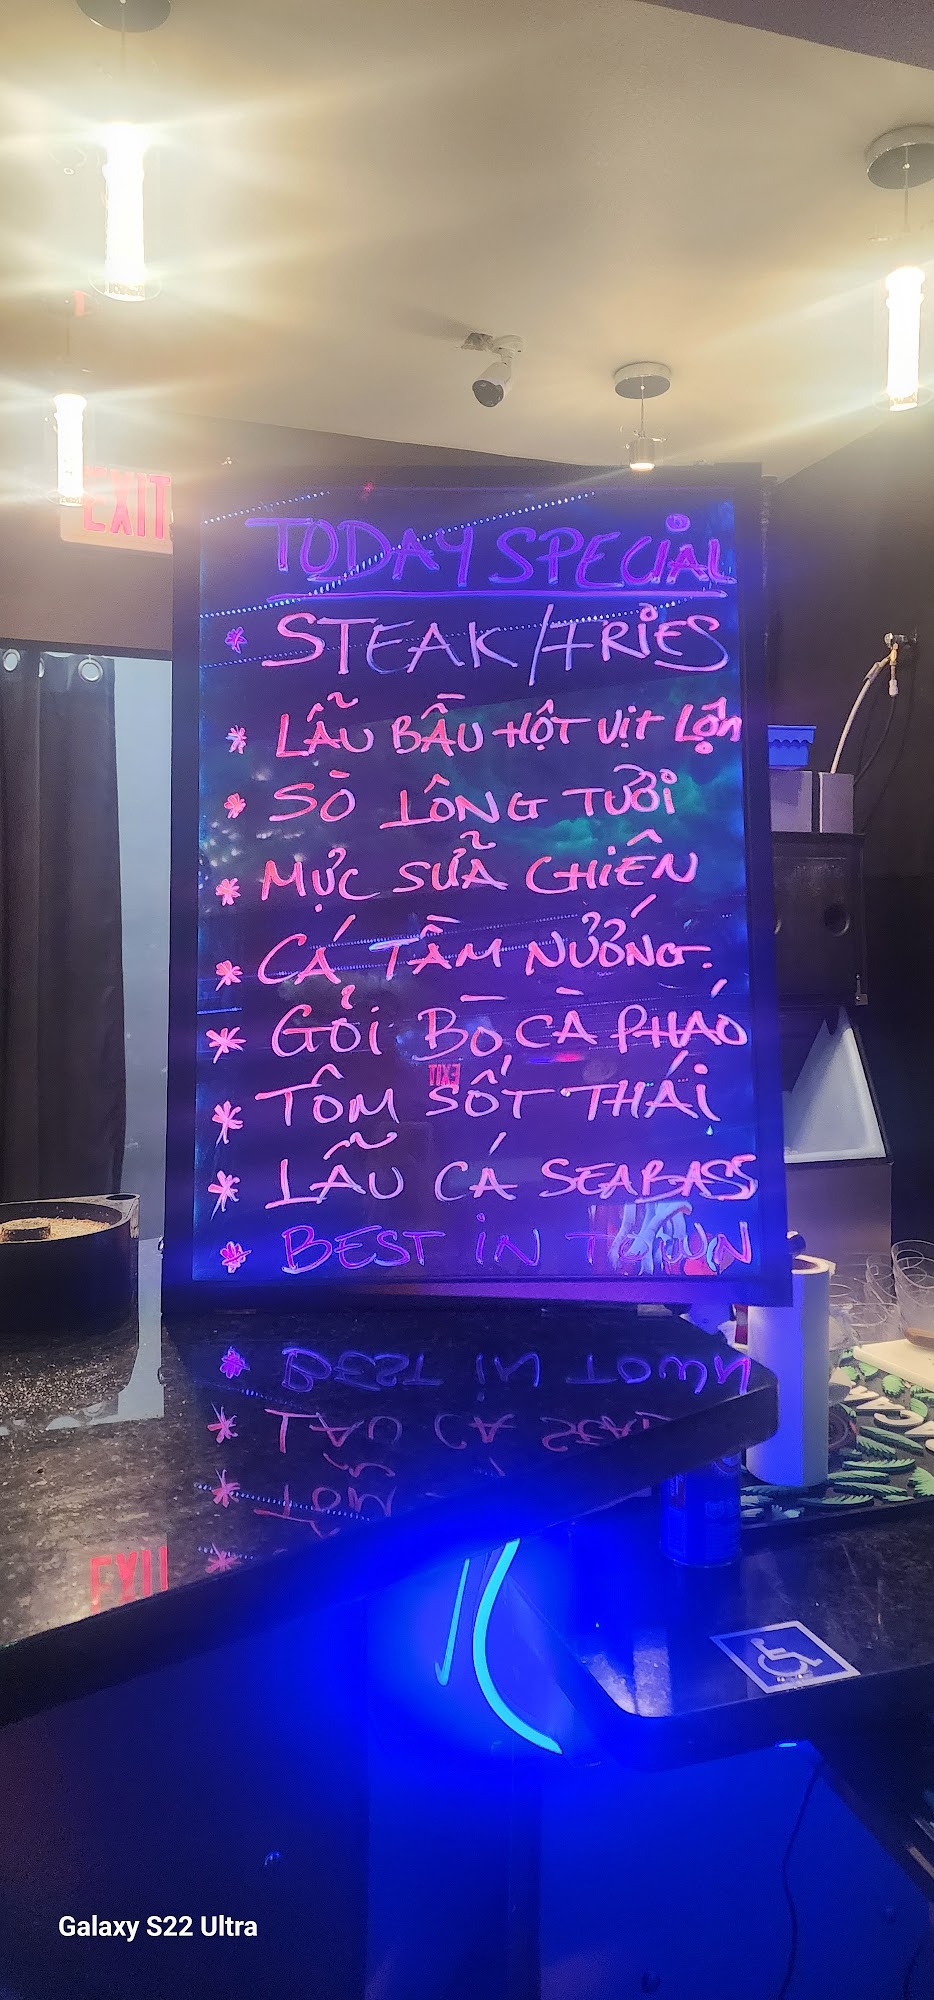 EXIT
TODAY SPECIAL
* STEAK/FRIES
* LẪU BẦU HỘT VỊT LỘN
* SÒ LÔNG TƯƠI
* MỰC SỮA CHIÊN
* CÁ TẦM NƯỚNG.
* GỎI BÒ, CÀ PHÁO
* TÔM SỐT THÁI
* LẪU CÁ SEABASS
* BEST IN TOWN
Galaxy S22 Ultra